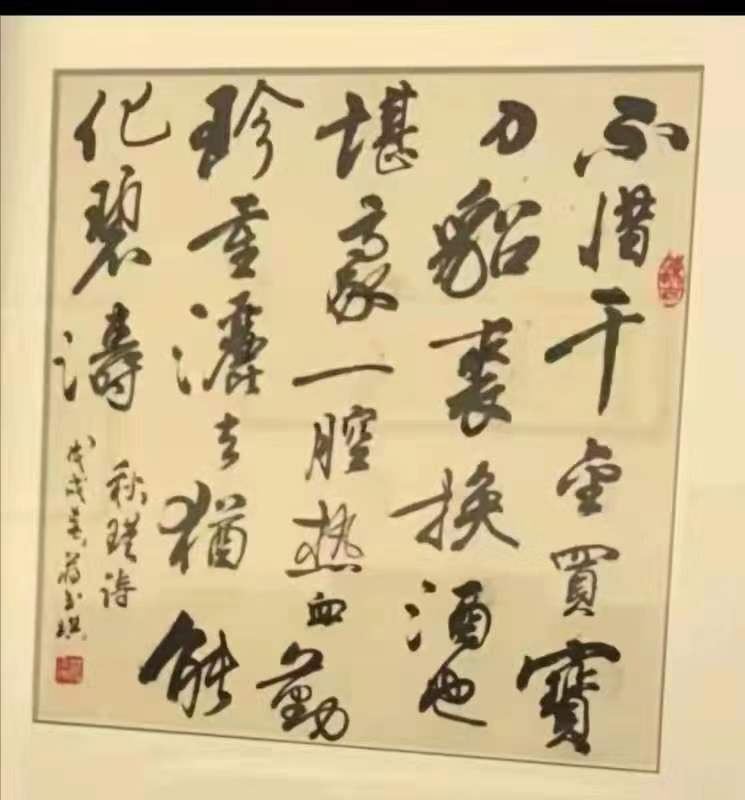 不惜千金買寶
刀貂裘換酒也
堪豪一腔熱血勤
珍重灑去猶能
化碧濤
秋瑾詩
戊戌